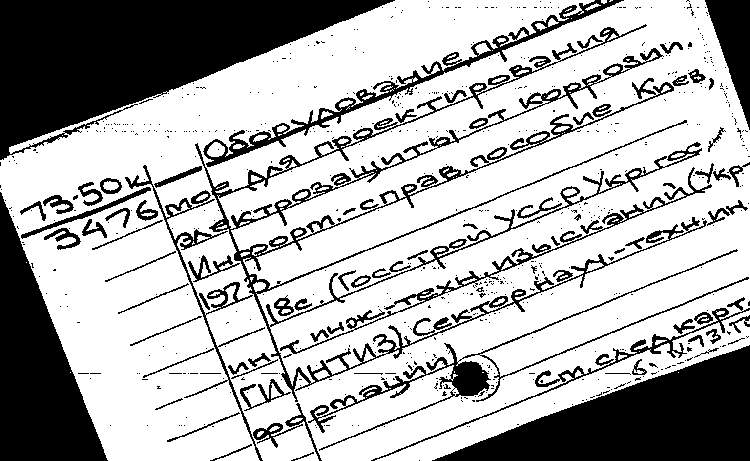 Оборудование, примен
73-50к мое для проектирования
3476 электрозащиты от коррозии.
Информ.-справ. пособие. Киев,
1973.
18с. (Госстрой УССР. Укр. гос.
ин-т инж.-техн. изысканий (Укр-
ГИИНТИЗ). Сектор науч.-техн. ин
формации)
См. след. карт.